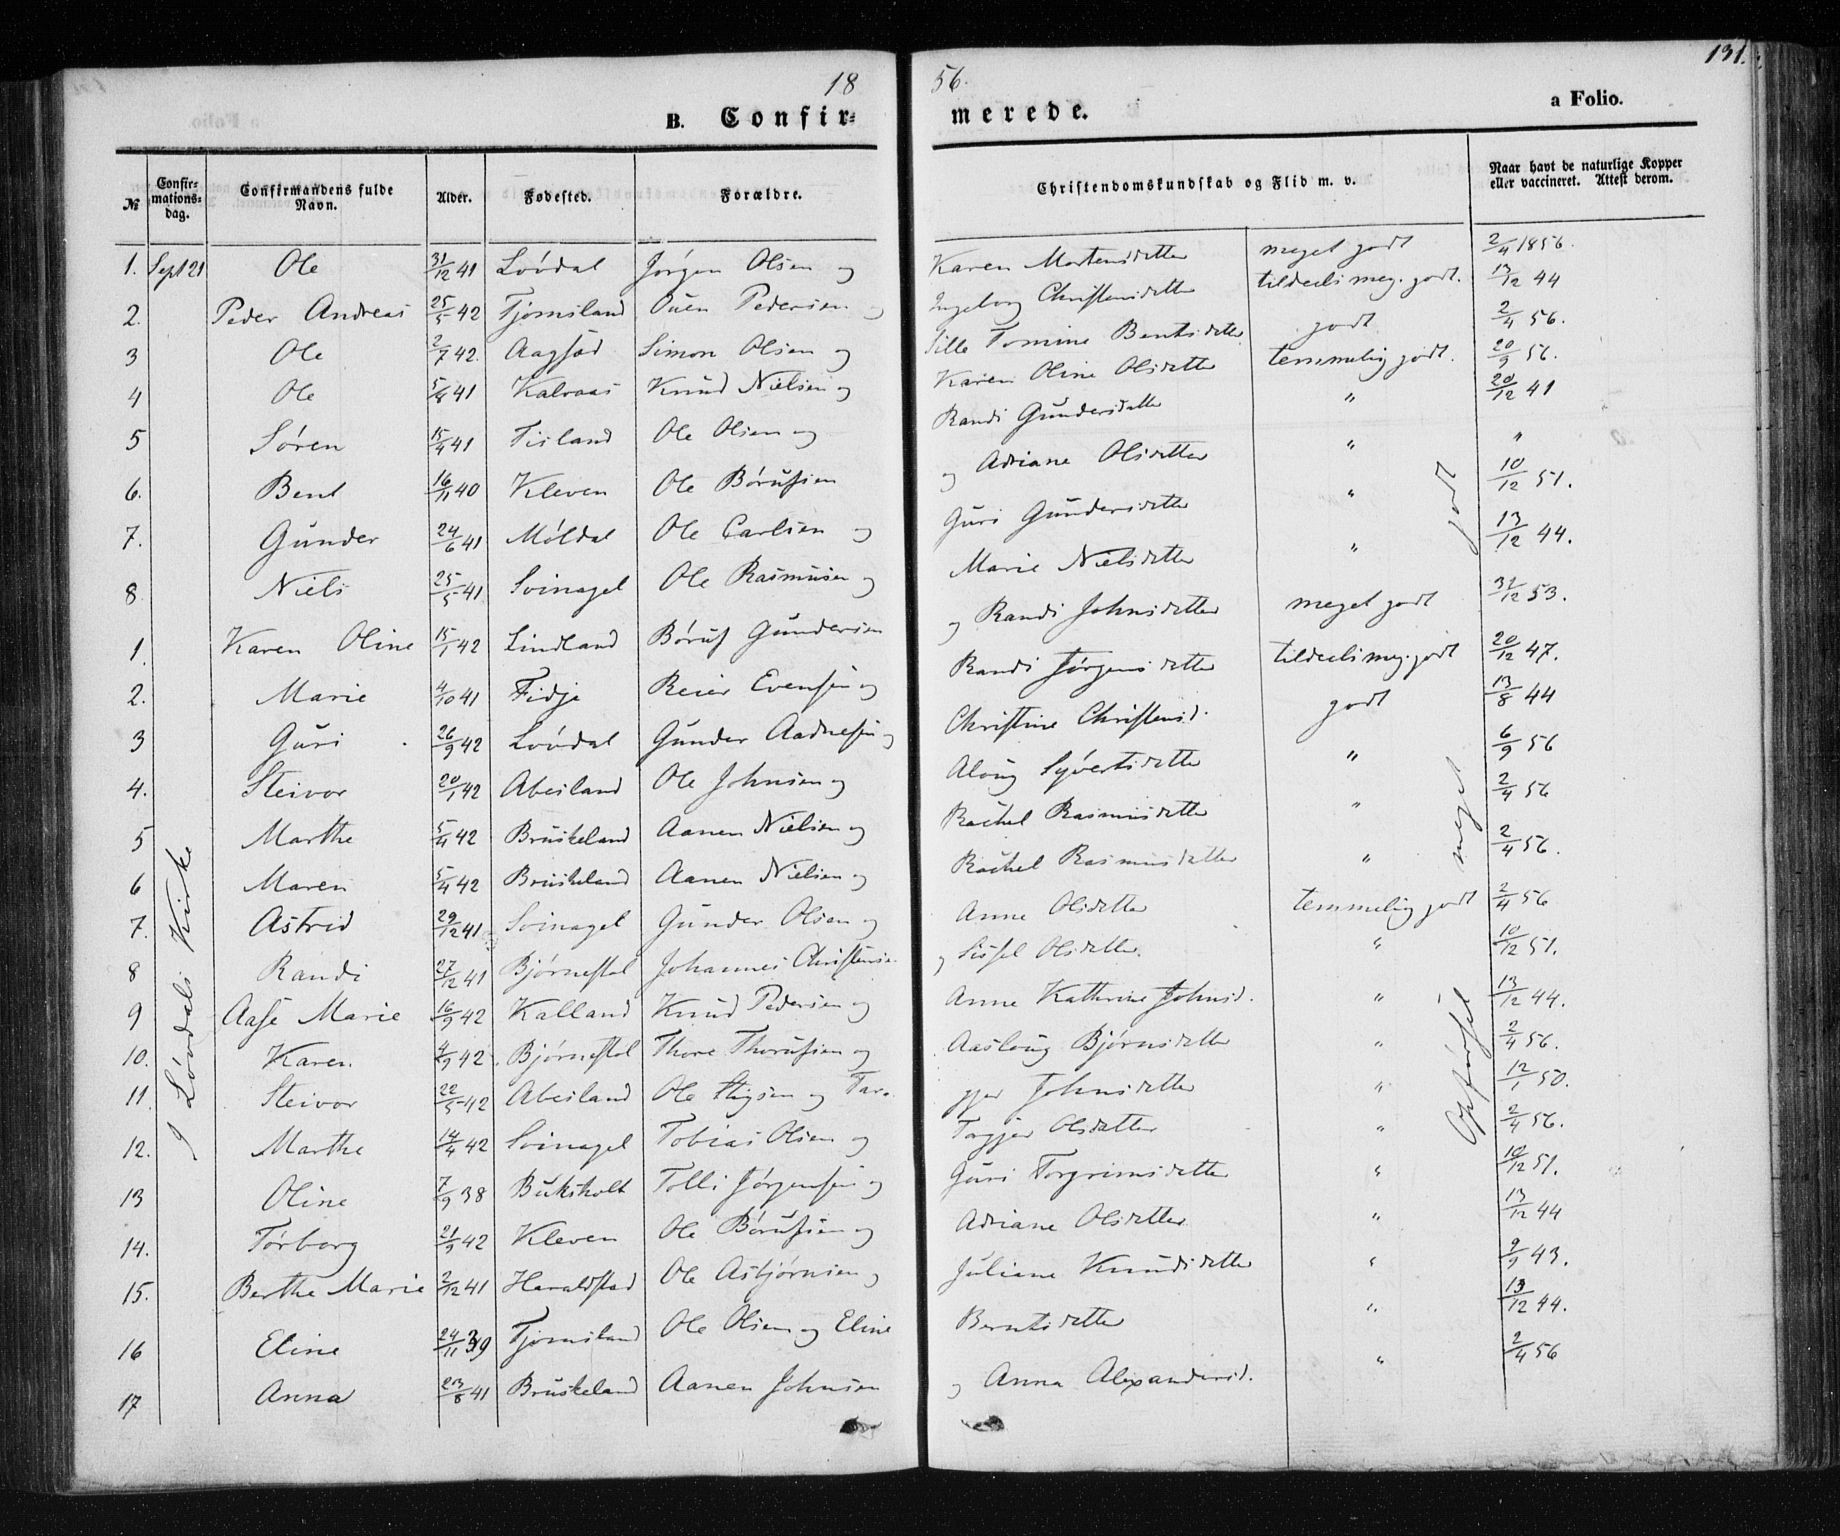 18 56. 131.
B. Confir= merede. a Folio.
№ Confir-mations-dag. Confirmandens fulde Navn. Alder. Fødested. Forældre. Christendomskundskab og Flid m. v. Naar havt de naturlige Kopper eller vaccineret. Attest derom.
1. Sept 21 Ole 31/12 41 Lovdal Jørgen Olsen og Karen Mortensdatter meget godt 2/4 1856.
2. Peder Andreas 25/5 42 Tjomsland Ouen Pedersen og Ingeborg Christensdatter tildeels meg. godt. 13/12 44
3 Ole 2/7 42. Aagsød Simon Olsen og Sille Tomine Bentsdatter godt 2/4 56.
4 Ole 5/8 41 Kalvaas Knud Nielsen og Karen Oline Olsdatter temmelig godt. 20/9 56.
5 Søren 15/4 41 Fisland Ole Olsen og Randi Gundersdatter " 20/12 41
6. Bent 16/11 40 Kleven Ole Børufsen og Adriane Olsdatter " "
7. Gunder 24/6 41 Møldal Ole Carlsen og Guri Gundersdatter " 10/12 51.
8 Niels 25/5 41 Svinagel Ole Rasmusen og Marie Nielsdatter " 13/12 44.
1. Karen Oline 15/1 42 Lindland Børuf Gundersen og Randi Johnsdatter meget godt 31/12 53.
2. Marie 4/10 41 Fidje Reier Evensen og Randi Jørgensdatter tildeels meg. godt 20/12 47.
3 Guri 26/9 42 Lovdal Gunder Aadnesen og Christine Christensd. godt 13/8 44
4. Steivor 20/1 42 Abesland Ole Johnsen og Aloug Syvertsdatter " 6/9 56
5 Marthe 5/4 42 Bruskeland Aanen Nielsen og Rachel Rasmusdatter " 2/4 56
6 Maren 5/4 42 Bruskeland Aanen Nielsen og Rachel Rasmusdatter " 2/4 56.
7. Astrid 29/12 41 Svinagel Gunder Olsen og Anne Olsdatter temmelig godt 2/4 56
8 Randi 27/12 41 Bjørnestøl Johannes Christensen og Sissel Olsdatter. " 10/12 51.
9 Aase Marie 16/9 42 Kalland Knud Pedersen og Anne Kathrine Johnsd. " 13/12 44.
10. Karen 4/9 42. Bjørnestøl Thore Thorufsen og Aasloug Bjørnsdatter " 2/4 56.
11. Steivor 22/5 42 Abesland Ole Stigsen og Tar- gjer Johnsdatter " 12/1 50.
12. Marthe 14/4 42 Svinagel Tobias Olsen og Torgjer Olsdatter " 2/4 56.
13 Oline 7/9 38 Buksholt Tolli Jørgensen og Guri Torgrimsdatter " 10/12 51.
14. Torborg 21/9 42 Kleven Ole Børufsen og Adriane Olsdatter " 13/12 44
15. Berthe Marie 2/12 41 Haraldstad Ole Asbjørnsen og Juliane Knudsdatter " 9/9 43.
16 Eline 24/11 39 Tjomsland Ole Olsen og Eline Berntsdatter " 13/12 44.
17 Anna 23/8 41 Bruskeland Aanen Johnsen og Anna Alexandersd. " 2/4 56
I Løvdals Kirke
Opførsel meget godt